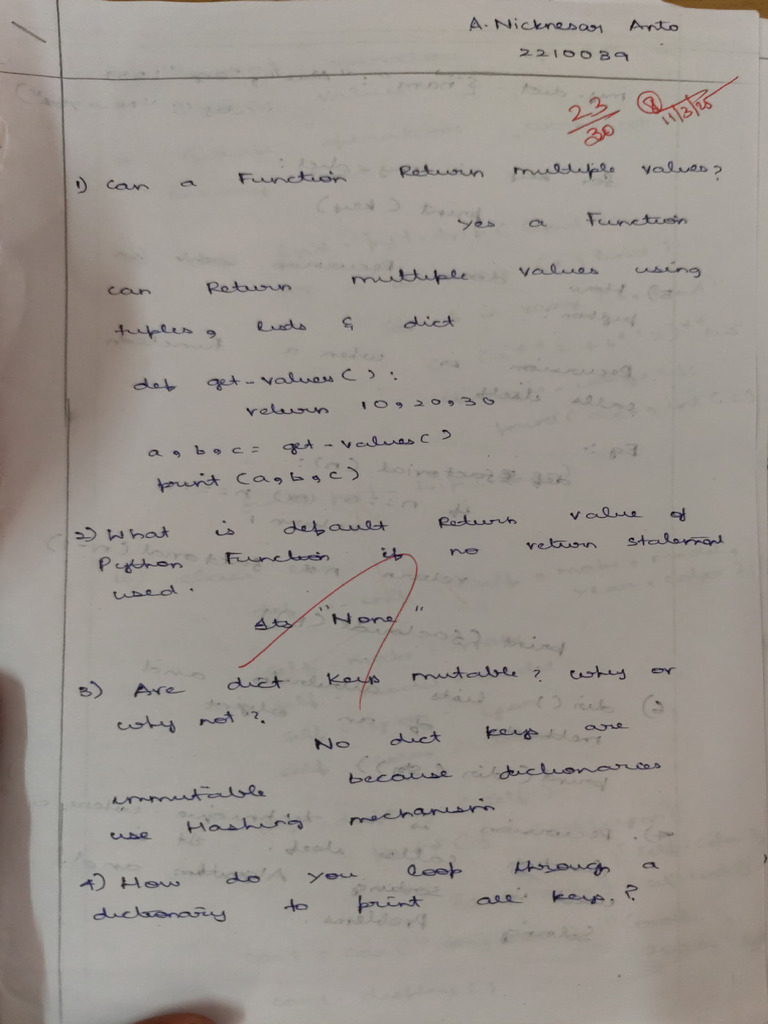 A. Nicknesar Anto
2210089
23/30
11/3/25
1) Can a Function Return multiple values?
Yes a Function
can Return multiple values using
tuples, lists & dict
def get-values():
return 10,20,30
a,b,c = get-values()
print (a,b,c)
2) What is default Return value of
Python Function if no return statement
used.
Its "None"
3) Are dict keys mutable? why or
why not?.
No dict keys are
immutable because dictionaries
use Hashing mechanism
4) How do you loop through a
dictionary to print all keys.?